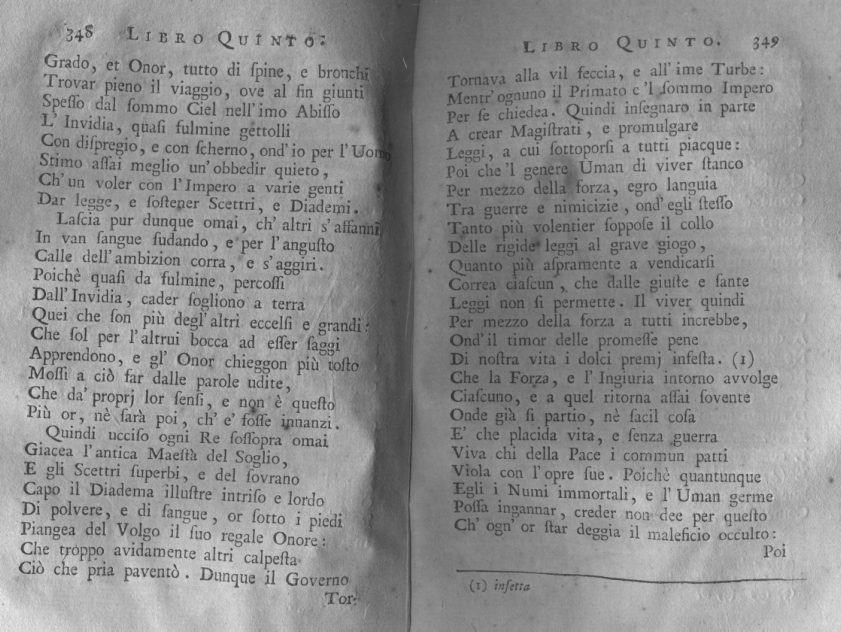 348 LIBRO QUINTO.
Grado, et Onor, tutto di ſpine, e bronchi
Trovar pieno il viaggio, ove al fin giunti
Speſſo dal ſommo Ciel nell'imo Abiſſo
L' Invidia, quaſi fulmine gettolli
Con diſpregio, e con ſcherno, ond'io per l'Uomo
Stimo aſſai meglio un'obbedir quieto,
Ch'un voler con l'Impero a varie genti
Dar legge, e ſoſtener Scettri, e Diademi.
Laſcia pur dunque omai, ch'altri s'affanni
In van ſangue ſudando, e per l'anguſto
Calle dell'ambizion corra, e s'aggiri.
Poichè quaſi da fulmine, percoſſi
Dall'Invidia, cader ſogliono a terra
Quei che ſon più degl'altri eccelſi e grandi:
Che ſol per l'altrui bocca ad eſſer ſaggi
Apprendono, e gl' Onor chieggon più toſto
Moſſi a ciò far dalle parole udite,
Che da' proprj lor ſenſi, e non è queſto
Più or, nè ſarà poi, ch' e' foſſe innanzi.
Quindi ucciſo ogni Re ſoſſopra omai
Giacea l'antica Maeſtà del Soglio,
E gli Scettri ſuperbi, e del ſovrano
Capo il Diadema illuſtre intriſo e lordo
Di polvere, e di ſangue, or ſotto i piedi
Piangea del Volgo il ſuo regale Onore:
Che troppo avidamente altri calpeſta
Ciò che pria paventò. Dunque il Governo
Tor-
LIBRO QUINTO. 349
Tornava alla vil feccia, e all'ime Turbe:
Mentr'ognuno il Primato e 'l ſommo Impero
Per ſe chiedea. Quindi inſegnaro in parte
A crear Magiſtrati, e promulgare
Leggi, a cui ſottoporſi a tutti piacque:
Poi che 'l genere Uman di viver ſtanco
Per mezzo della forza, egro languia
Tra guerre e nimicizie, ond'egli ſteſſo
Tanto più volentier ſoppoſe il collo
Delle rigide leggi al grave giogo,
Quanto più aſpramente a vendicarſi
Correa ciaſcun, che dalle giuſte e ſante
Leggi non ſi permette. Il viver quindi
Per mezzo della forza a tutti increbbe,
Ond'il timor delle promeſſe pene
Di noſtra vita i dolci premj infeſta. (1)
Che la Forza, e l'Ingiuria intorno avvolge
Ciaſcuno, e a quel ritorna aſſai ſovente
Onde già ſi partio, nè facil coſa
E' che placida vita, e ſenza guerra
Viva chi della Pace i commun patti
Viola con l'opre ſue. Poichè quantunque
Egli i Numi immortali, e l'Uman germe
Poſſa ingannar, creder non dee per queſto
Ch' ogn' or ſtar deggia il maleficio occulto:
Poi
(1) inſetta